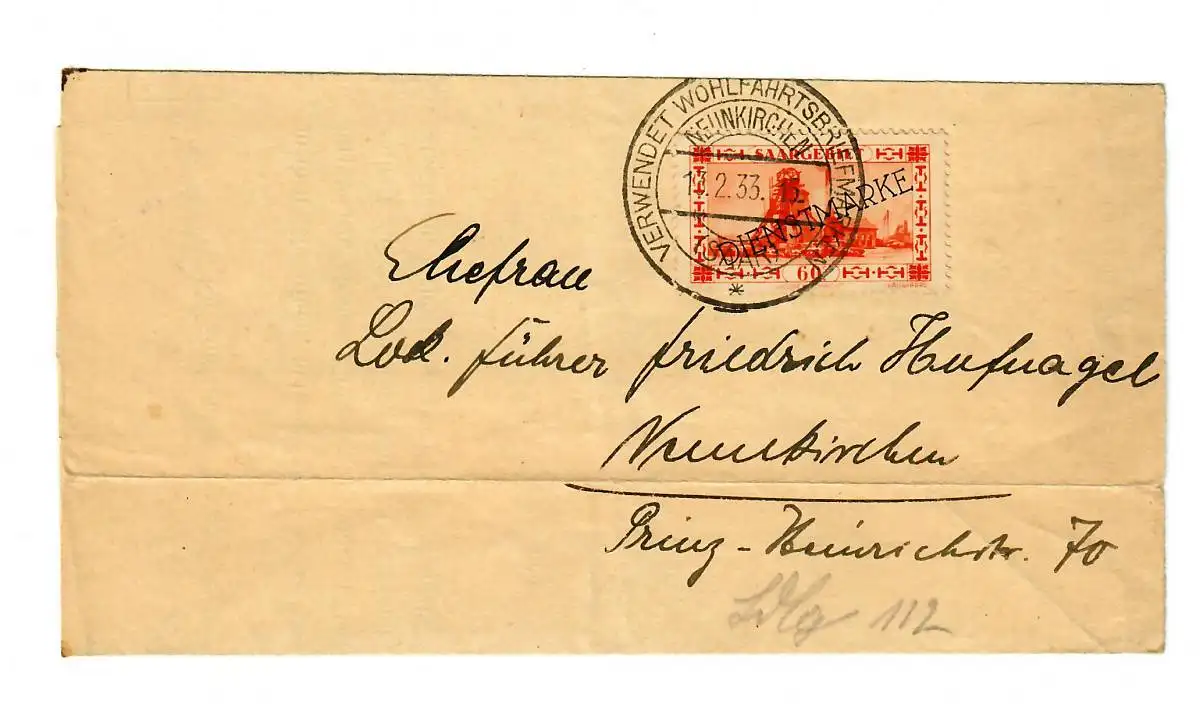 VERWENDET WOHLFAHRTSBRIEFMARKEN
NEUNKIRCHEN
13.2.33. 15
(SAAR)
*
SAARGEBIET
DIENSTMARKE
60
Ehefrau
Lok. führer Friedrich Hufnagel
Neunkirchen
Prinz-Heinrichstr. 70
112